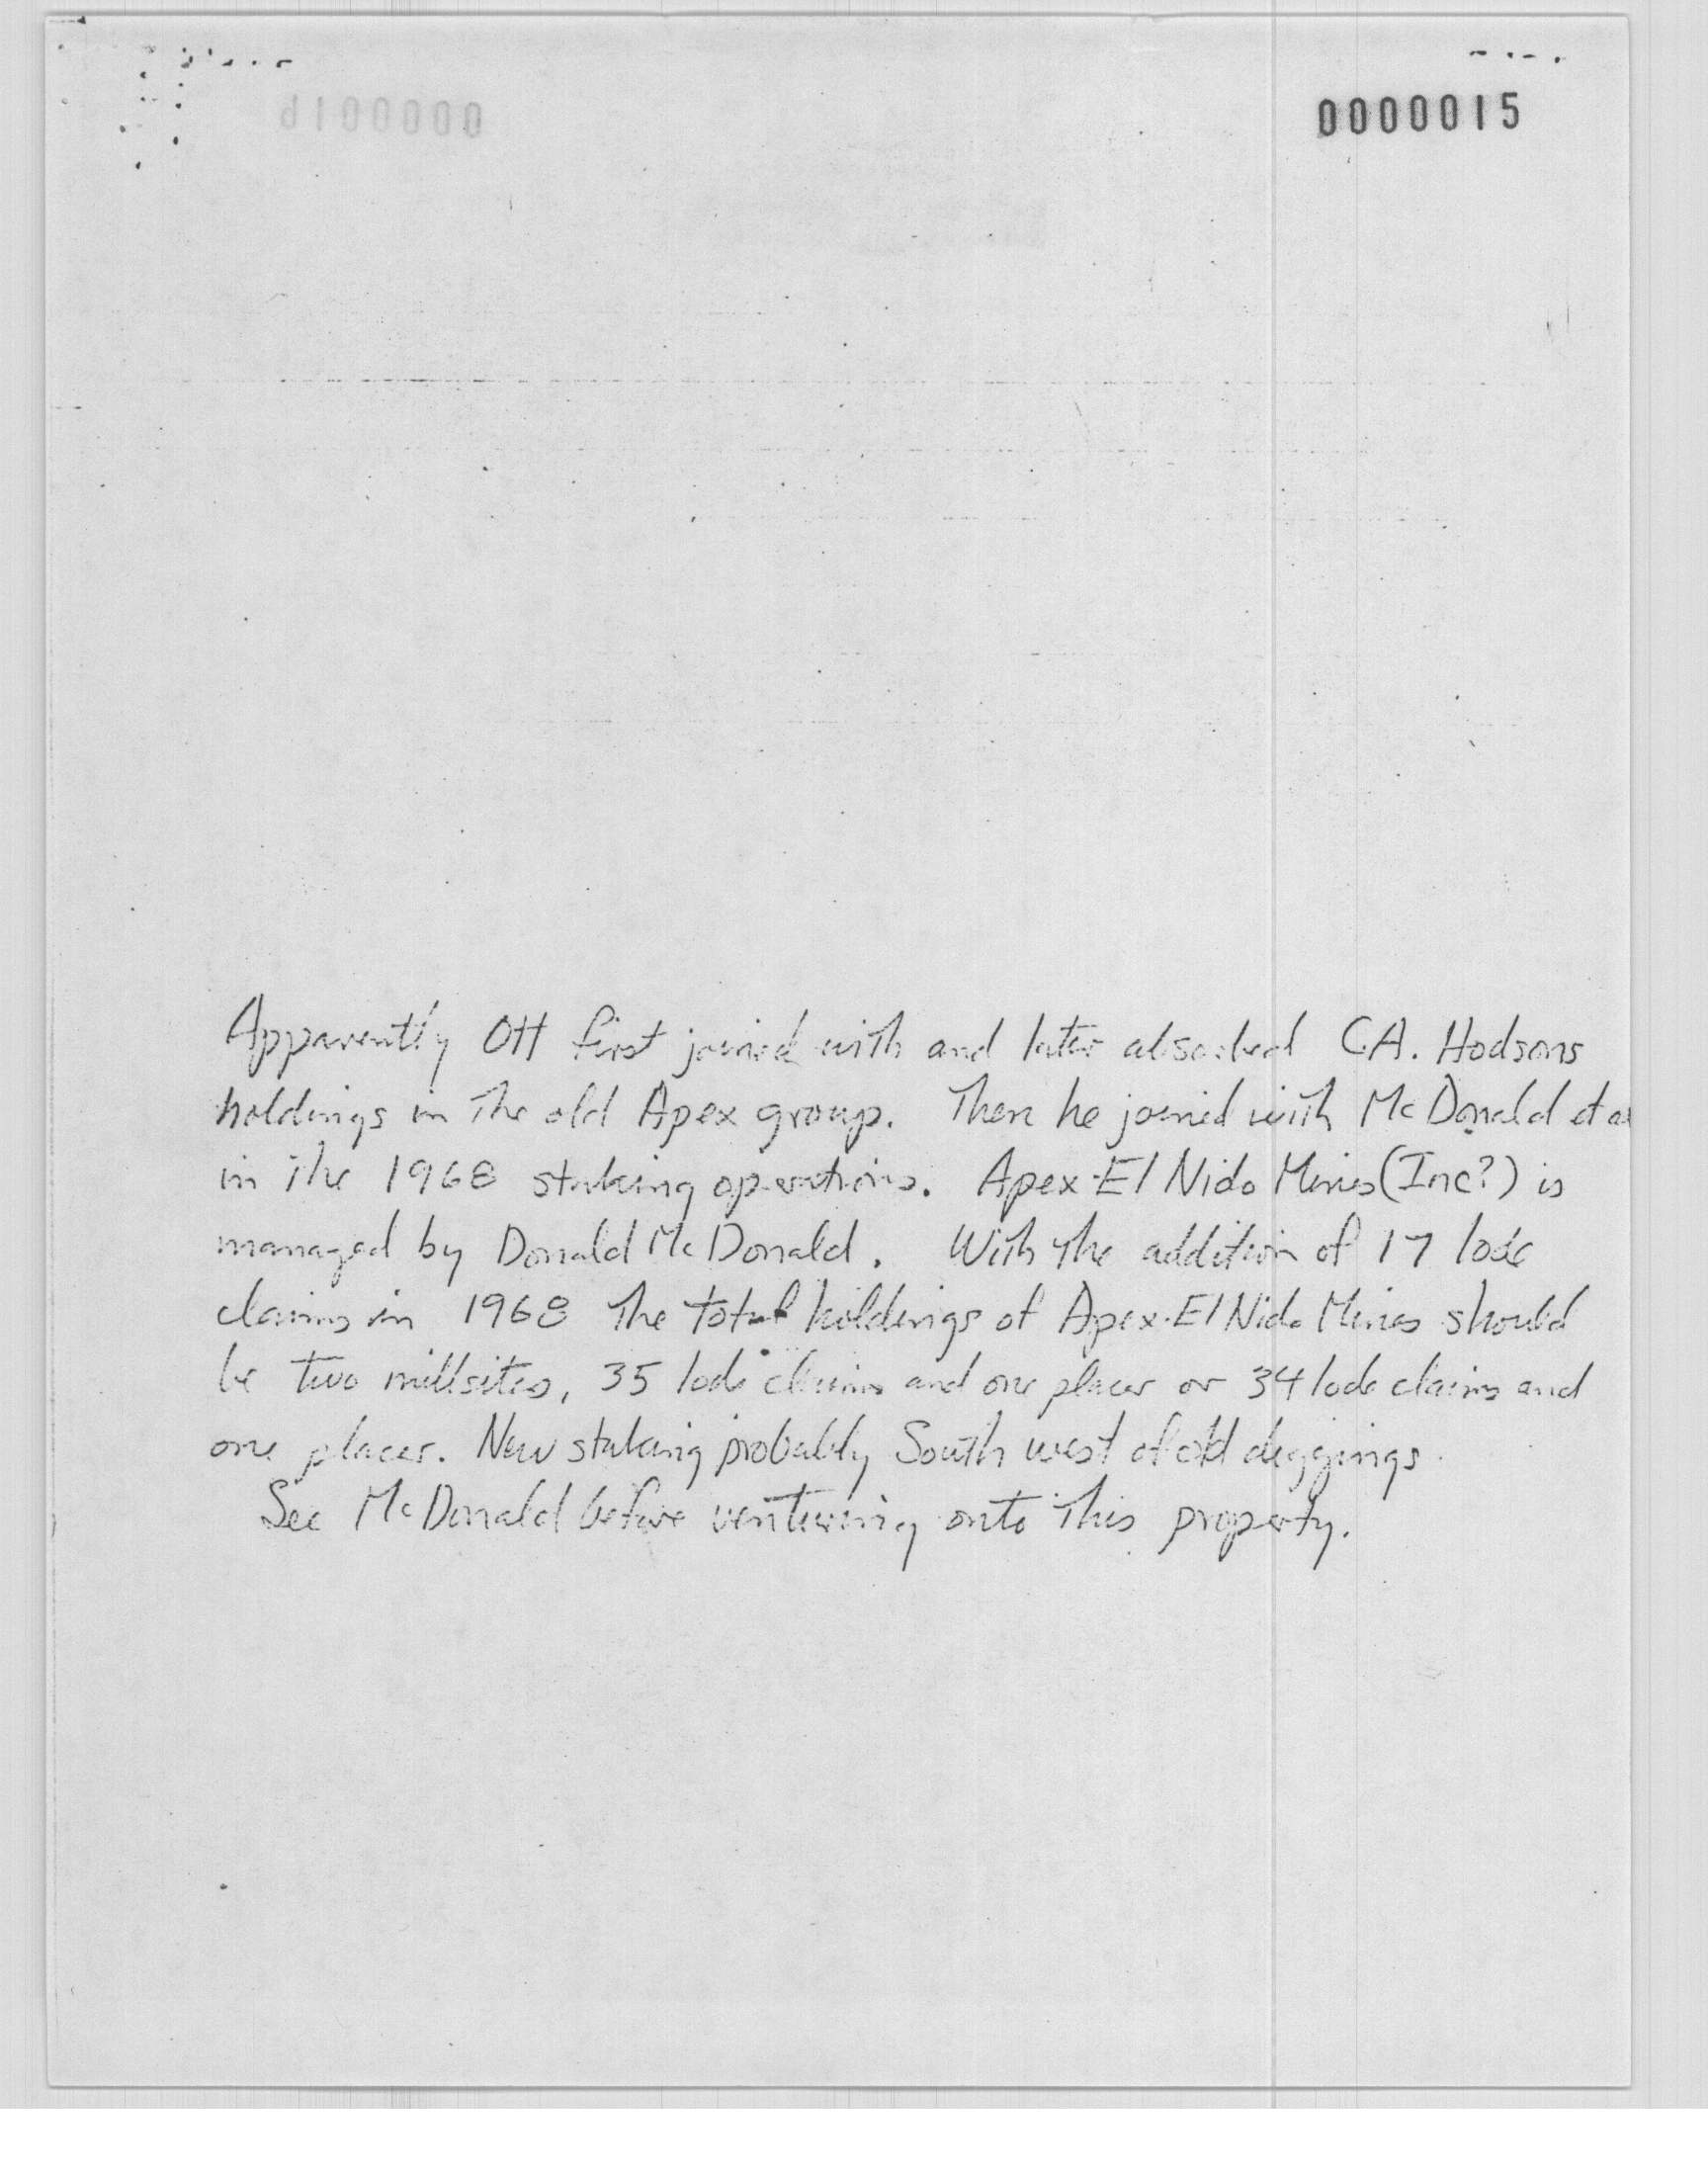 0000015
Apparently Ott first joined with and later absorbed C.A. Hodsons
holdings in the old Apex group. Then he joined with McDonald et al
in the 1968 staking operations. Apex-El Nido Mines (Inc?) is
managed by Donald McDonald. With the addition of 17 lode
claims in 1968 the total holdings of Apex-El Nido Mines should
be two millsites, 35 lode claims and one placer or 34 lode claims and
one placer. New staking probably South west of old diggings.
See McDonald before venturing onto this property.